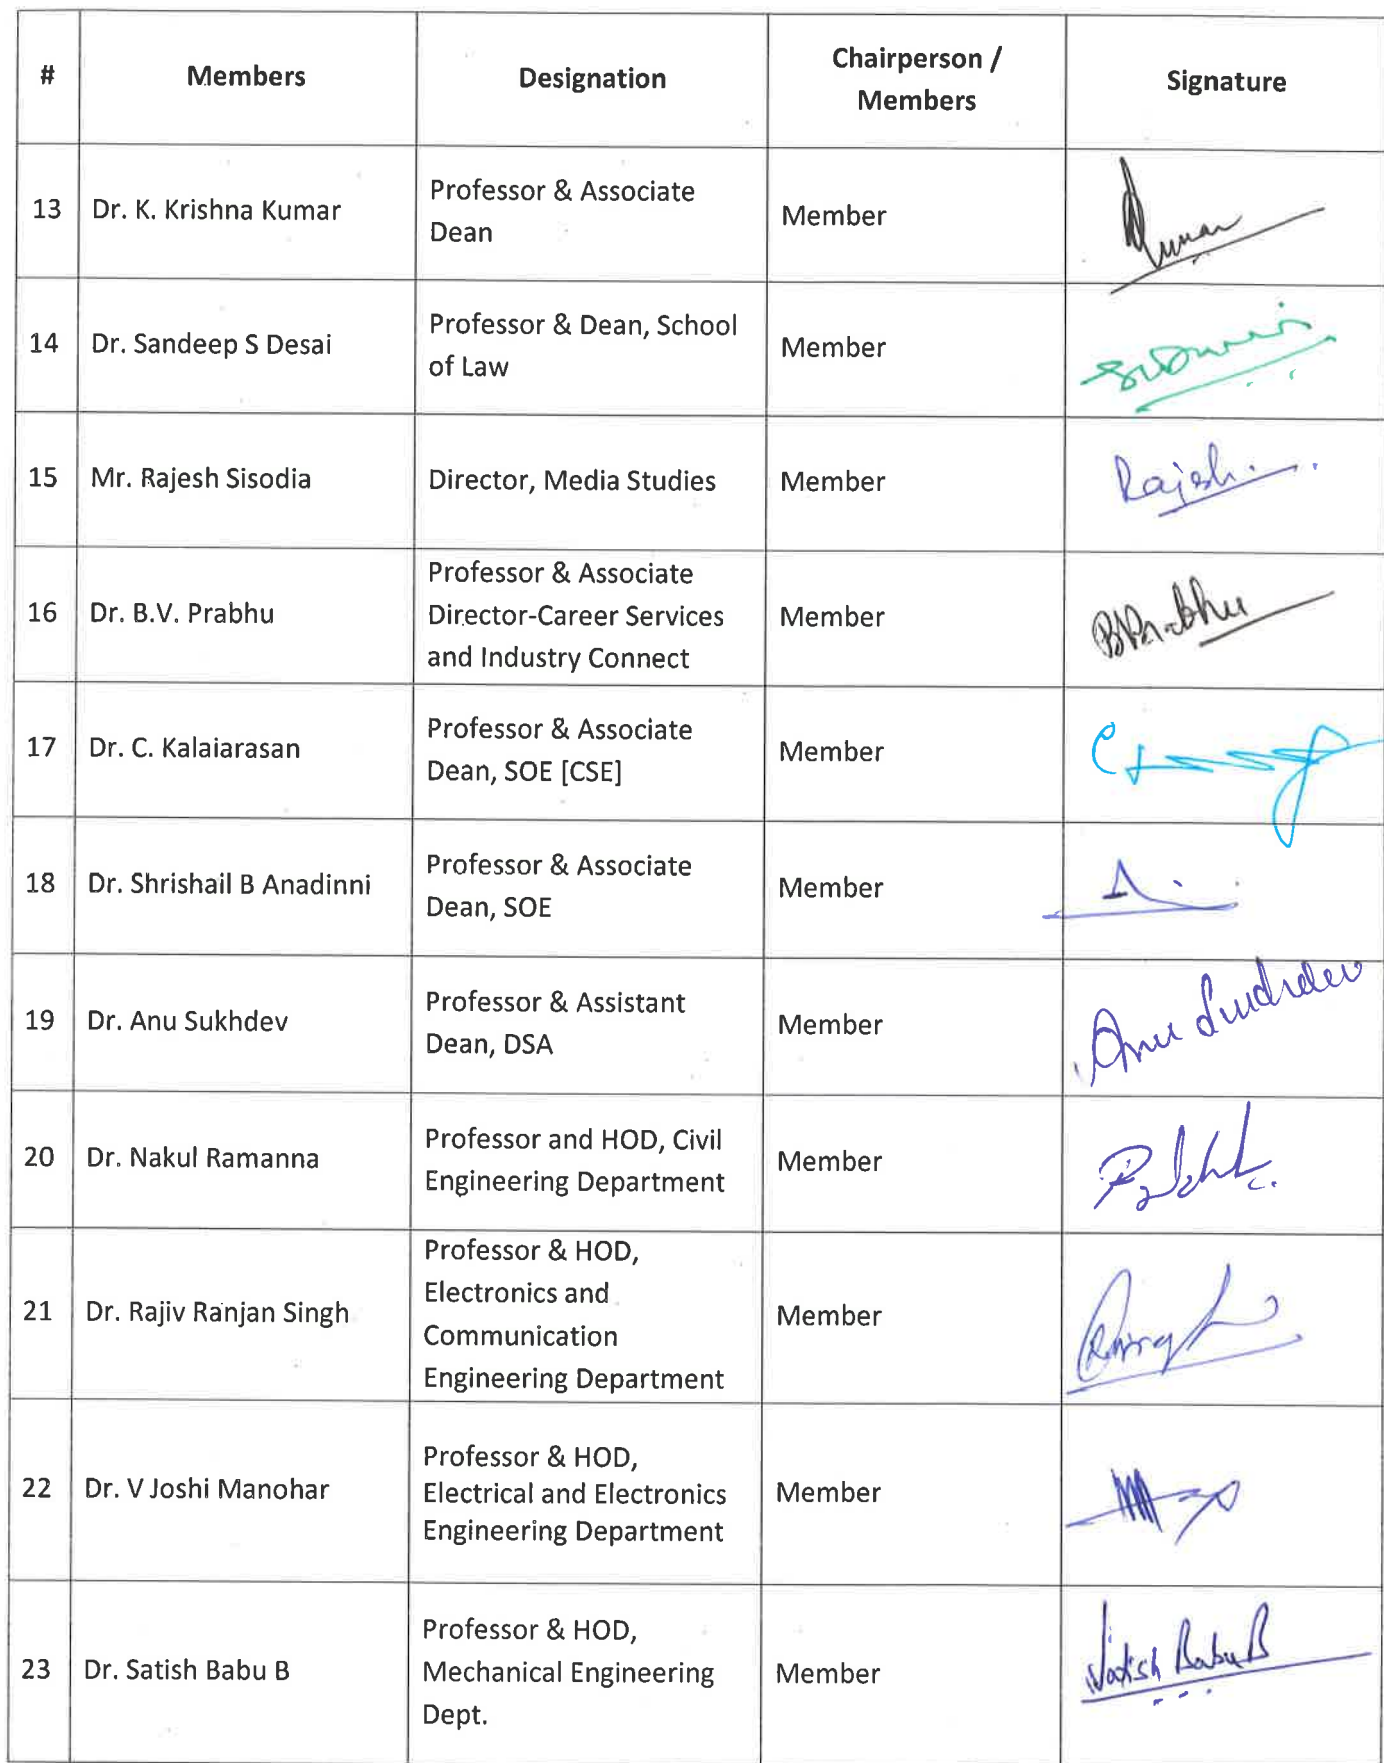 #
Members
Designation
Chairperson /
Members
Signature
13
Dr. K. Krishna Kumar
Professor & Associate
Dean
Member
Kumar
14
Dr. Sandeep S Desai
Professor & Dean, School
of Law
Member
15
Mr. Rajesh Sisodia
Director, Media Studies
Member
Rajesh
16
Dr. B.V. Prabhu
Professor & Associate
Director-Career Services
and Industry Connect
Member
BVPrabhu
17
Dr. C. Kalaiarasan
Professor & Associate
Dean, SOE [CSE]
Member
18
Dr. Shrishail B Anadinni
Professor & Associate
Dean, SOE
Member
19
Dr. Anu Sukhdev
Professor & Assistant
Dean, DSA
Member
Anu Sukhdev
20
Dr. Nakul Ramanna
Professor and HOD, Civil
Engineering Department
Member
21
Dr. Rajiv Ranjan Singh
Professor & HOD,
Electronics and
Communication
Engineering Department
Member
22
Dr. V Joshi Manohar
Professor & HOD,
Electrical and Electronics
Engineering Department
Member
23
Dr. Satish Babu B
Professor & HOD,
Mechanical Engineering
Dept.
Member
Satish Babu B